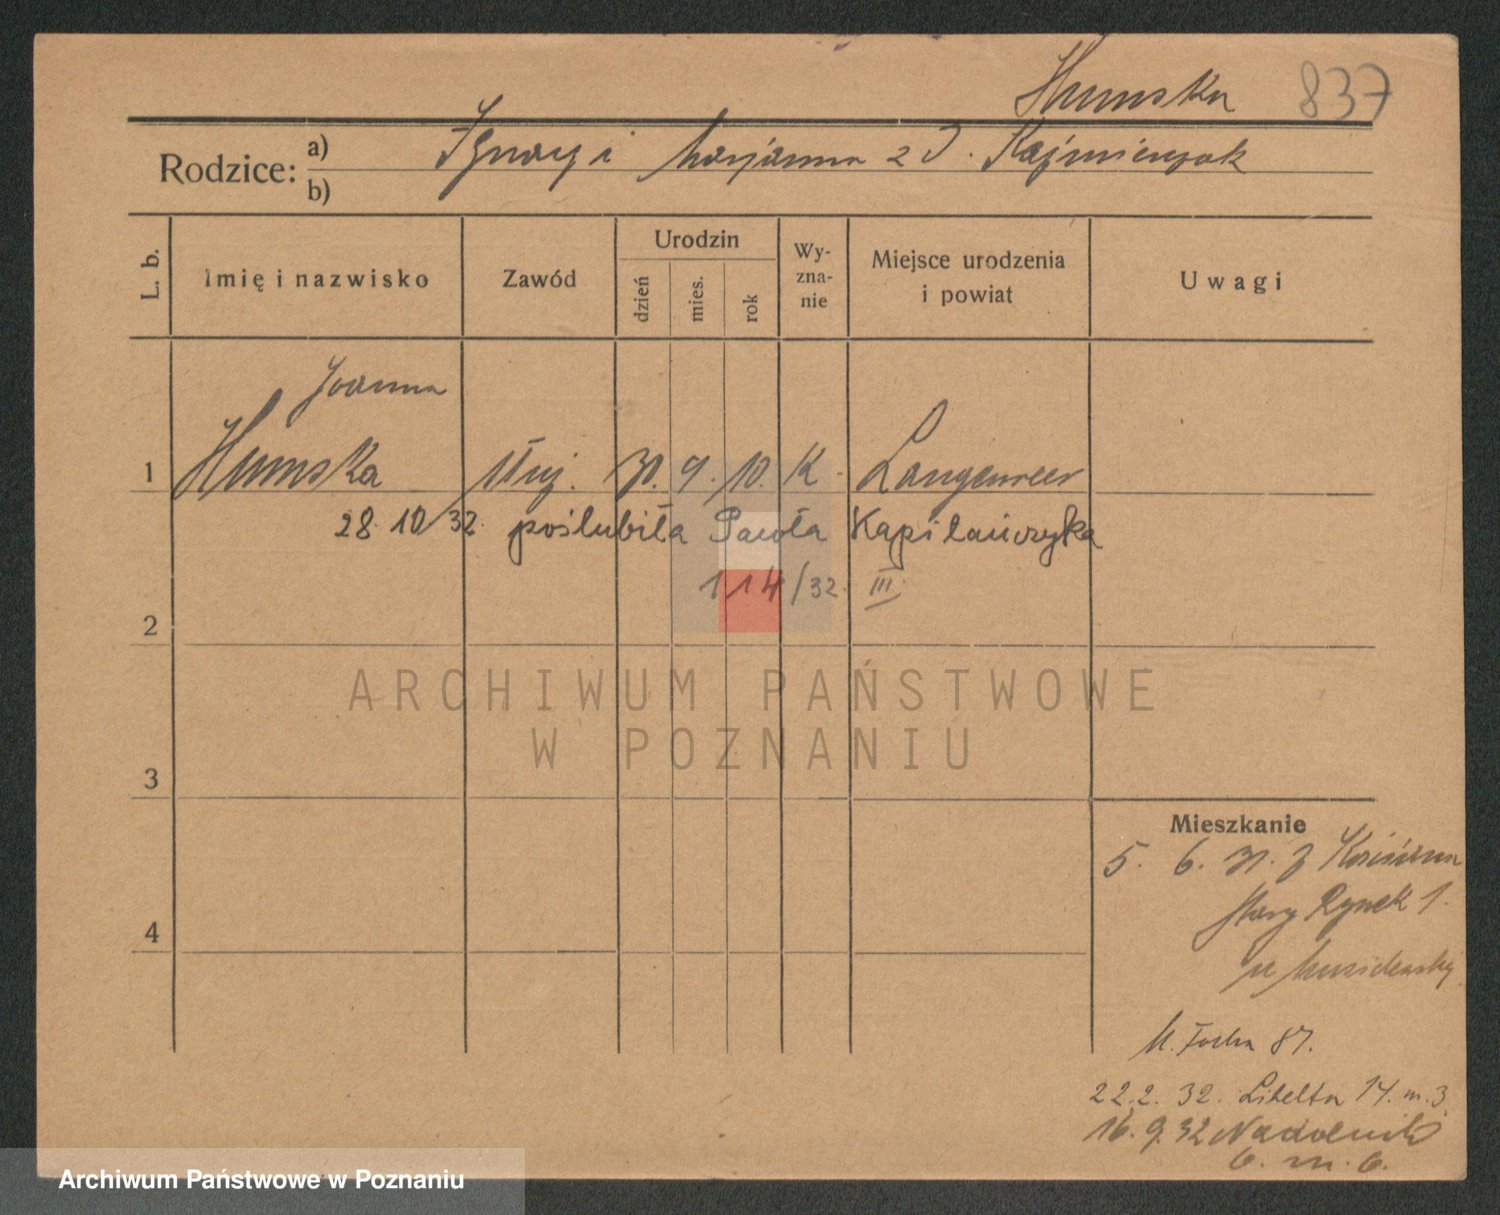 Humska 837
Rodzice: a) b)
Ignacy i Marjanna z d. Kaźmierczak
L. b.
Imię i nazwisko
Zawód
Urodzin
dzień
mies.
rok
Wy-
zna-
nie
Miejsce urodzenia
i powiat
Uwagi
Joanna
1 Humska służ. 30. 9. 10. K. Langendreer
28. 10/32. poślubiła Kapilańczyka
114/32. III
2
3
4
Mieszkanie
5. 6. 31. z
Stary Rynek 1.
M. Focha 87.
22.2. 32. Libelta 14. m. 3
16. 9. 32 Nadolnik
6. m. 6.
ARCHIWUM PAŃSTWOWE
W POZNANIU
Archiwum Państwowe w Poznaniu